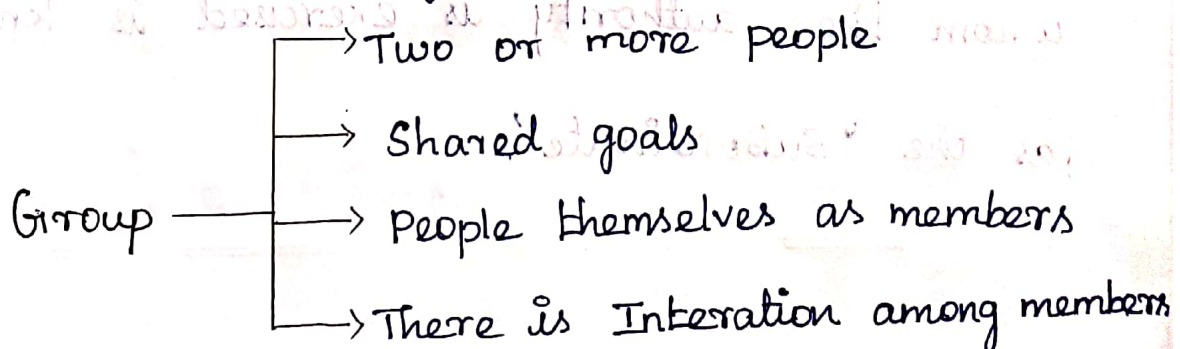 Two or more people
Shared goals
Group
People themselves as members
There is Interation among members